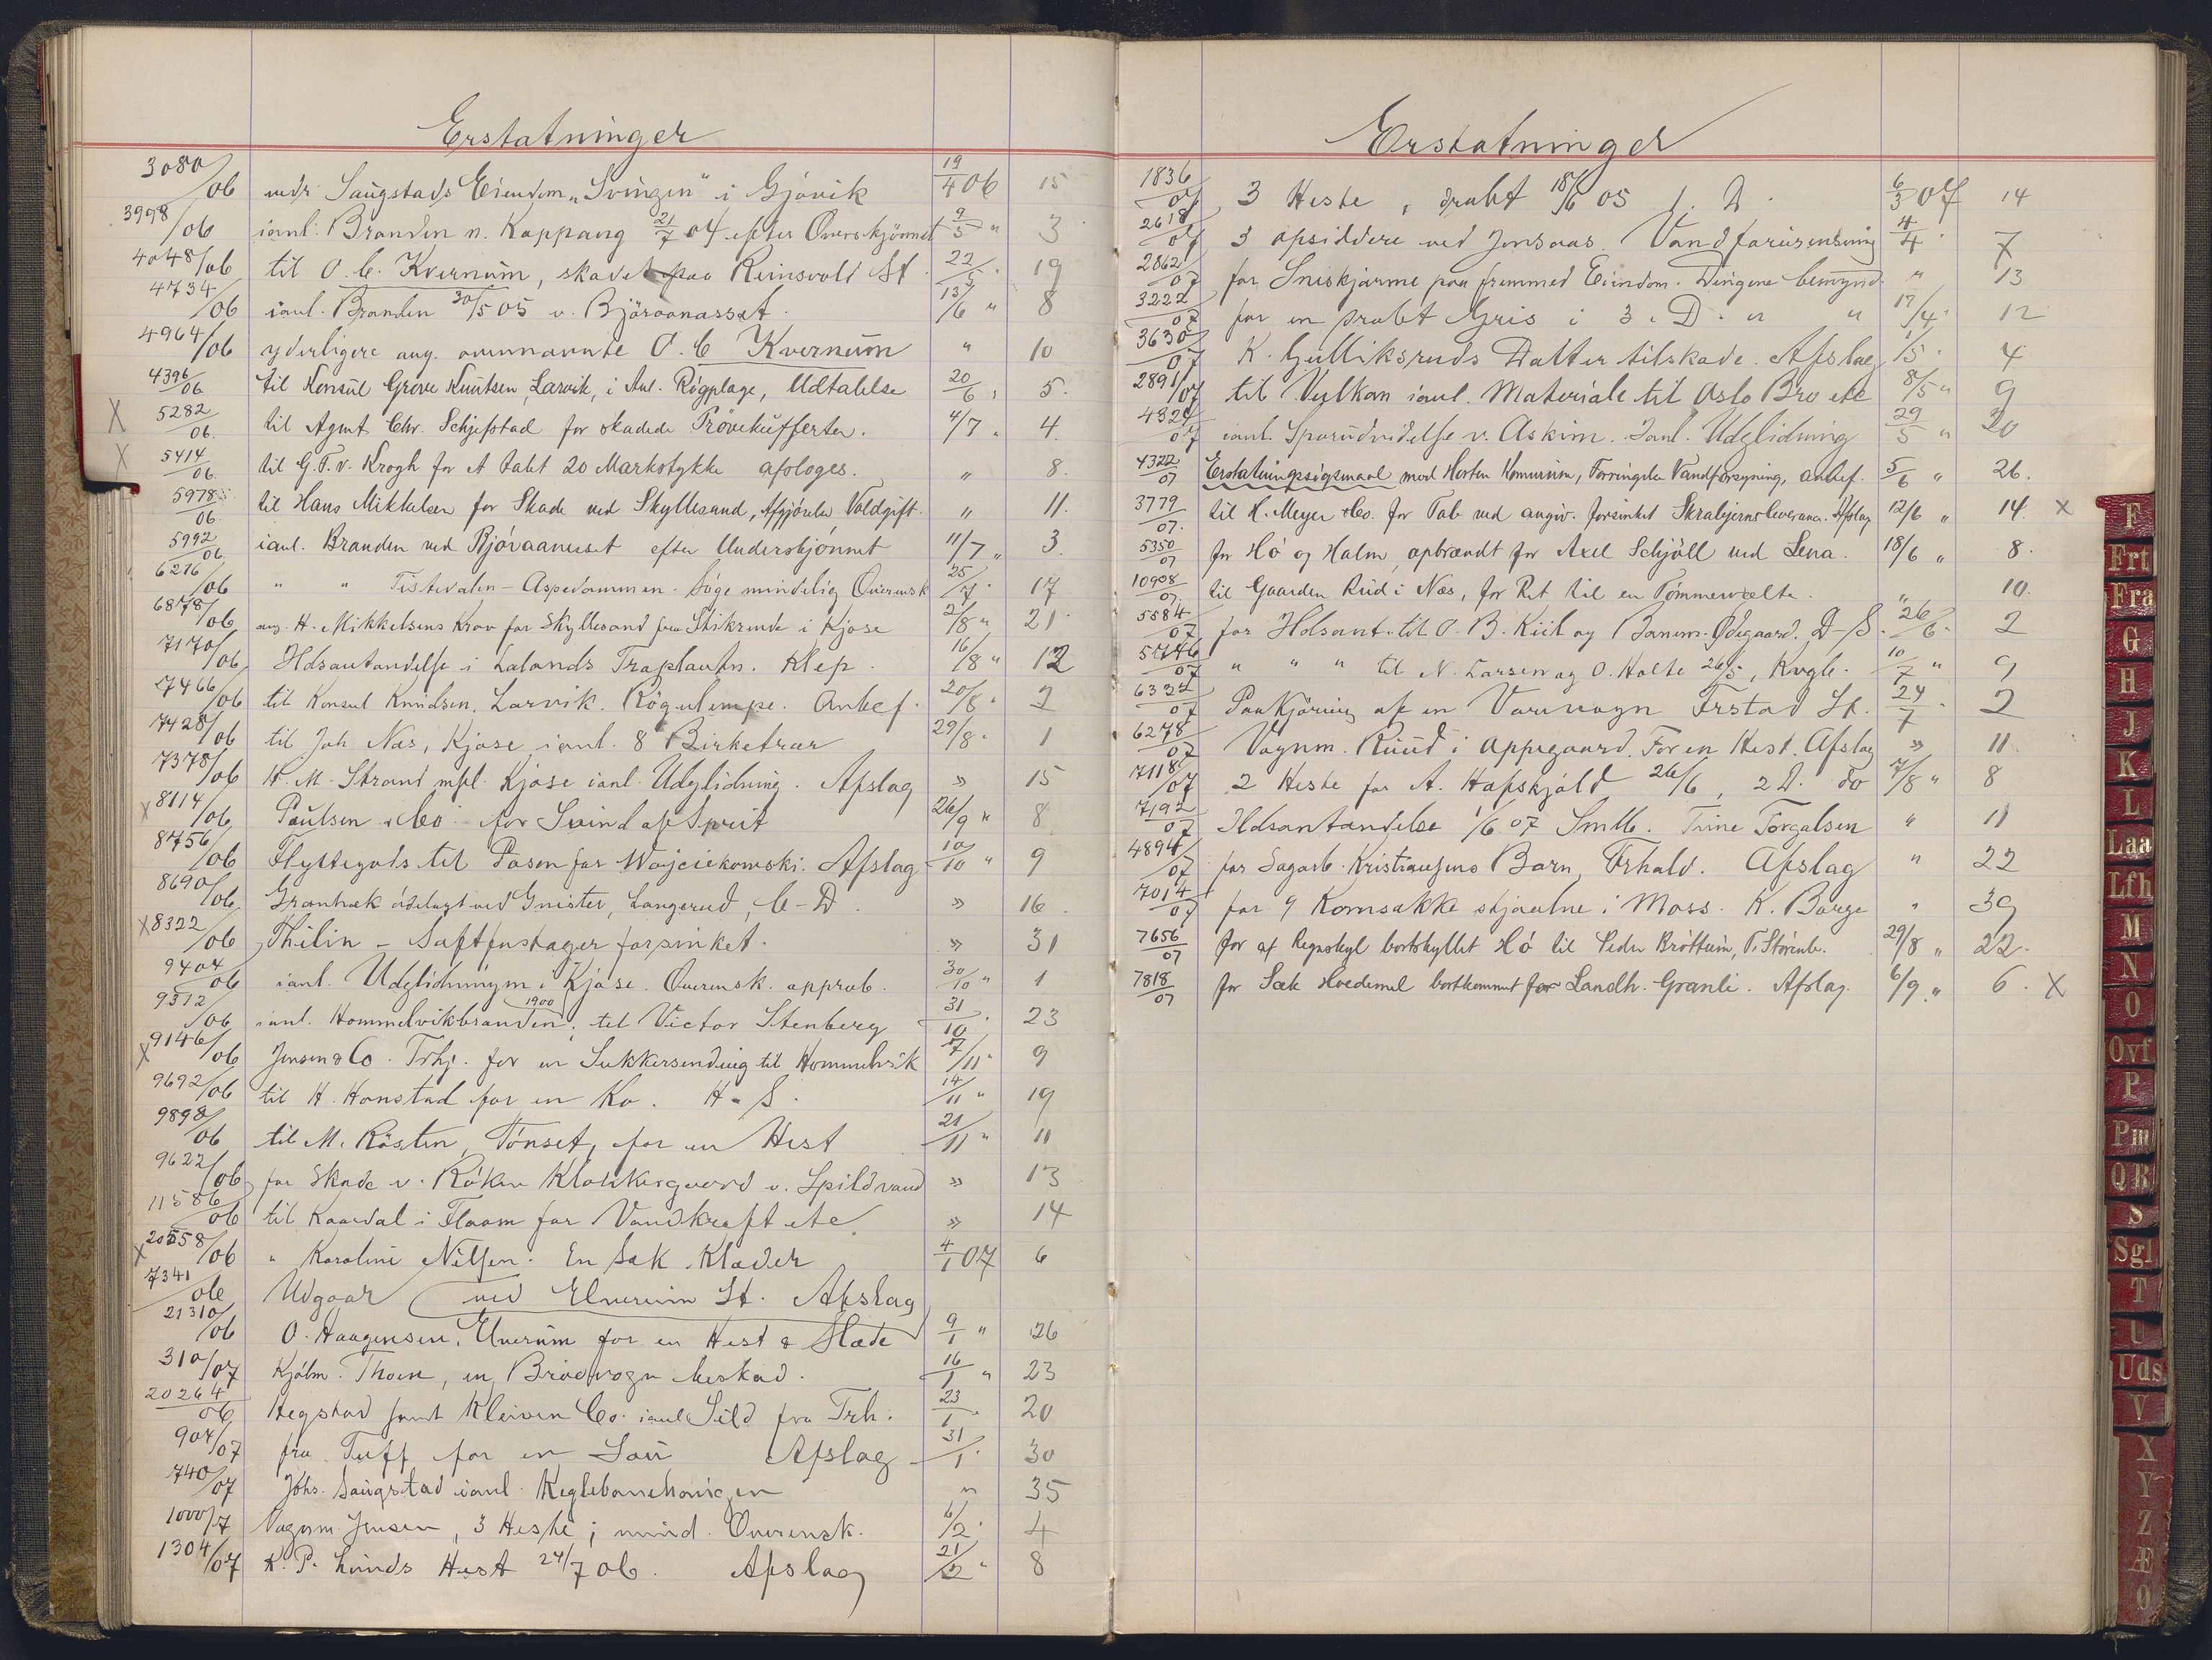 Erstatninger
3080/06 vedr. Saugstads Eiendom „Svingen" i Gjövik 19/4 06 15
3998/06 ianl. Branden n. Koppang 21/7 04 efter Overskjönnet 9/5 " 3
4048/06 til O. C. Kvernum, skadet paa Reinsvold St. 22/5 " 19
4734/06 ianl. Branden 30/5 05 v. Björaanesset. 13/6 " 8
4964/06 yderligere ang. ovennævnte O. C. Kvernum " 10
4396/06 til Konsul Grove Knutsen, Larvik, i Anl. Rögplage, Udtalelse 20/6 " 5.
X 5282/06. til Agent Chr. Schjefstad for skadede Prövekufferter. 4/7 " 4.
X 5414/06. til G. F. v. Krogh for et tabt 20 Markstykke afsloges. " 8.
5978/06. til Hans Mikkelsen for Skade ved Skyllesand, Afgjörelse Voldgift. " 11.
5992/06. ianl. Branden ved Björaanesset efter Underskjönnet 11/7 " 3.
6216/06 " " Tistedalen - Aspedammen. Söge mindelig Overensk 25/7 " 17
6878/06 ang. H. Mikkelsens Krav for Skyllesand fra Stikrende i Kjose 2/8 " 21
7170/06 Ildsantændelse i Lalands Træplantn. Klep. 16/8 " 12
7466/06 til Konsul Knudsen, Larvik. Rögulempe. Anbef. 20/8 " 2
7428/06 til Joh Næs, Kjose ianl. 8 Birketrær 29/8 " 1
7378/06 H. M. Strand mfl. Kjose ianl. Udglidning. Afslag » 15
X 8114/06 Paulsen & Co for Svind af Sprit 26/9 " 8
8756/06 Flyttegods til Posen for Wojciekowski. Afslag 10/10 " 9
8690/06 Granhæk ödelagt ved Gnister, Langerud, C-D. » 16.
X 8322/06 Thilin - Saftfustager forsinket. » 31
9404/06 ianl. Udglidningen i Kjose. Overensk. approb. 30/10 " 1
9312/06 ianl. Hommelvikbranden 1900, til Victor Stenberg 31/10 " 23
X 9146/06 Jensen & Co. Trhj. for en Sukkersending til Hommelvik 7/11 " 9
9692/06 til H. Honstad for en Ko. H-S. 14/11 " 19
9898/06 til M. Rösten, Tönset, for en Hest 21/11 " 11
9622/06 for Skade v. Röken Klokkergaard v. Spildvand » 13
11586/06 til Kaardal i Flaam for Vandkraft etc » 14
X 20558/06 " Karoline Nilsen. En Sæk Klæder 4/1 07 6
7341/06 Udgaar ved Elverum St. Afslag
21310/06 O. Haagensen, Elverum for en Hest & Slæde 9/1 " 26
310/07 Kjöbm. Thoen, en Brödvogn beskad. 16/1 " 23
20264/06 Hegstad samt Kleiven & Co. ianl Sild fra Trh. 23/1 " 20
904/07 fra Tuff for en Sau Afslag 31/1 " 30
740/07 Johs. Saugstad ianl. Keglebane " 35
1000/7 Vognm. Jensen, 3 Heste; mind. Overensk. 6/2 " 4
1304/07 K. P. Lunds Hest 24/7 06. Afslag 21/2 " 8
Erstatninger
1836/07 3 Heste, dræbt 18/6 05 1. D. 6/3 07 14
2618/07 3 opsiddere ved Jonsaas. Vandforurensning 4/4 " 7
2862/07 for Sneskjærme paa fremmed Eiendom. Dirigene bemynd. " 13
3222/07 for en dræbt Gris i 3. D. " " 17/4 " 12
3630/07 K. Gulliksruds Datter tilskade. Afslag 1/5 " 4
2891/07 til Vulkan ianl. Materiale til Oslo Bro etc 8/5 " 9
4329/07 ianl. Sporudvidelse v. Askim. Ianl. Udglidning 29/5 " 20
4322/07 Erstatningssögsmaal mod Horten Kommune, Forringelse Vandforsyning, anbef. 5/6 " 26.
3779/07. til H. Meyer & Co. for Tab ved angiv. forsinket Skrabjernsleverance. Afslag 12/6 " 14. X
5350/07 for Hö og Halm, opbrændt for Axel Schjöll ved Lena. 18/6 " 8.
10908/07. til Gaarden Rud i Næs, for Ret til en Tömmervælte. " 10.
5584/07 for Ildsant. til O. B. Kiil og Banem. Ödegaard. D-S. 26/6 " 2
5746/07 " " " til N. Larsen og O. Holte 26/5, Krgl. 10/7 " 9
6322/07 Paakjöring af en Varevogn Frstad St. 24/7 " 2
6278/07 Vognm. Ruud i Oppegaard. For en Hest. Afslag » 11.
7118/07 2 Heste for A. Hafskjold 26/6, 2 D. do 7/8 " 8
7192/07 Ildsantændelse 1/6 07 Smlb. Trine Torgalsen " 11
4894/07 for Sagarb. Kristiansens Barn, Frhald. Afslag " 22
7014/07 for 9 Kornsække stjaalne i Moss. K. Borge " 39
7656/07 for af Regnskyl bortskyllet Hö til Peder Bröttum, V. Störenb. 29/8 " 22.
7818/07 for Sæk Hvedemel bortkommet for Landh. Granli. Afslag. 6/9 " 6. X
F
Frt
Fra
G
H
J
K
L
Laa
Lfh
M
N
O
Ovf
P
Pm
QR
S
Sgl
T
U
Uds
V
X
Y
Z
Æ
Ø